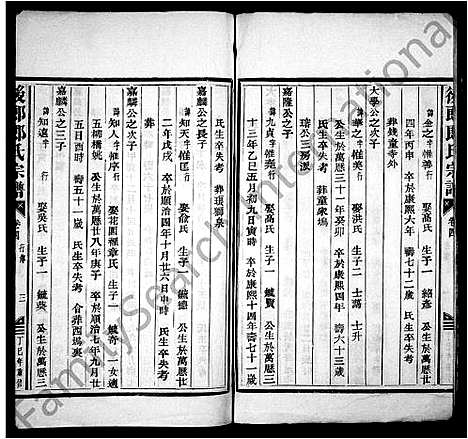 後鄭鄭氏宗譜 卷四
諱念之 惟善 行 娶高氏 生子一 紹彥 公生於萬歷
四年丙申 卒於康熙六年 壽七十二歲 氏生卒失考
葬錢童寺外
大學公之次子
諱華之 惟英 行 娶洪氏 生子二 士萬 士升
公生於萬歷三十一年癸卯 卒於康熙四年 壽六十三歲
氏生卒失考 葬童家塢
瑃公三房派
嘉隆公之子
諱九貞 惟賓 行 娶高氏 生子一 鉞賢 公生於萬歷三
十三年乙巳五月初九日寅時 卒於康熙十四年 壽七十一歲
氏生卒失考 葬塸獨泉
嘉麟公之長子
諱知天 惟匡 行 娶俞氏 生子一 鉞德 公生於萬歷
二年戊戌 卒於順治四年十月廿六日申時 氏生卒失考
葬
諱知人 惟序 行 娶花園裡章氏 生子一 鉞奇 一女適
五柳橋姚 公生於萬歷廿八年庚子 卒於順治七年九月廿
五日酉時 壽五十一歲 氏生卒失考 合葬西塢裏
嘉麟公之三子
諱知遠 惟 行 娶吳氏 生子一 鉞英 公生於萬歷三
後鄭鄭氏宗譜 卷四 行傳 三 丁巳年重修
FamilySearch International